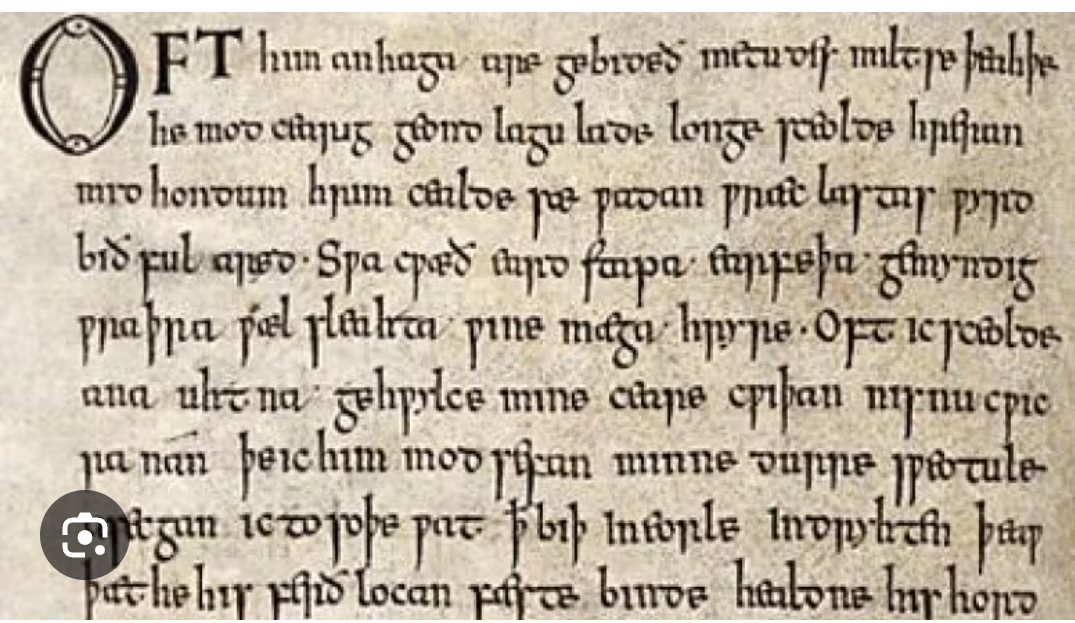 OFT him anhaga are gebideð metudes miltse þeahþe
he mod cearig geond lagu lade longe sceolde hreran
mid hondum hrim cealde sæ wadan wræc lastas wyrd
bið ful aræd · Swa cwæð eard stapa earfeþa gemyndig
wraþra wæl sleahta wine mæga hryre · Oft ic sceolde
ana uhtna gehwylce mine ceare cwiþan nis nu cwic
ra nan þe ic him mod sefan minne durre sweotule
asecgan ic to soþe wat þ biþ in eorle indryhten þeaw
þæt he his ferð locan fæste binde healdne his hord